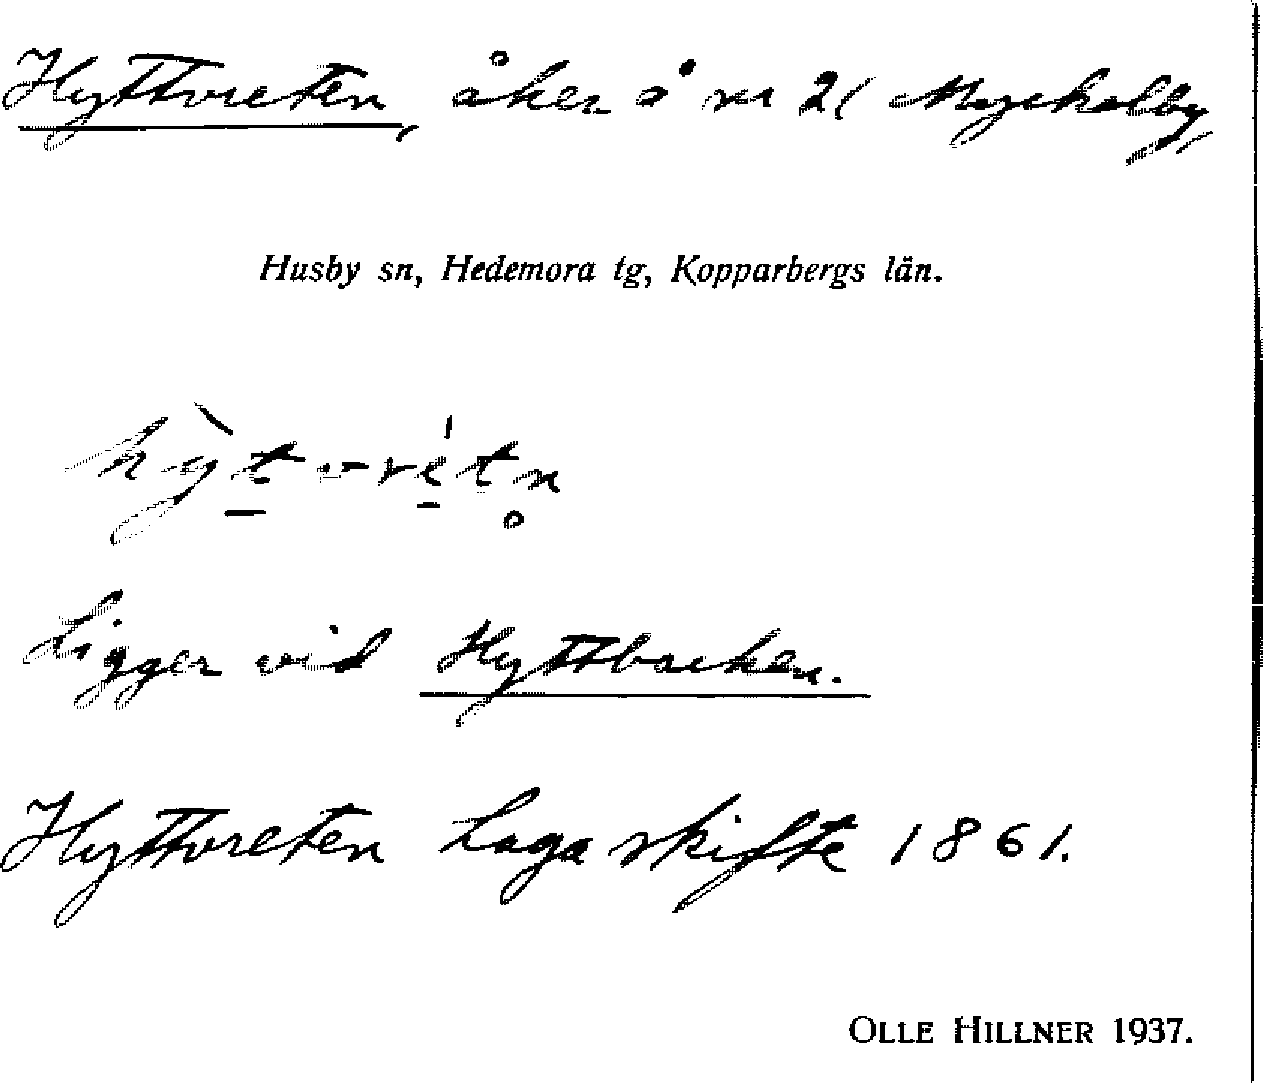 Hyttvreten, åker å nr 21 Myckelby,
Husby sn, Hedemora tg, Kopparbergs län.
hỳt vrétn̥
Ligger vid Hyttbacken.
Hyttvreten Laga skifte 1861.
OLLE HILLNER 1937.